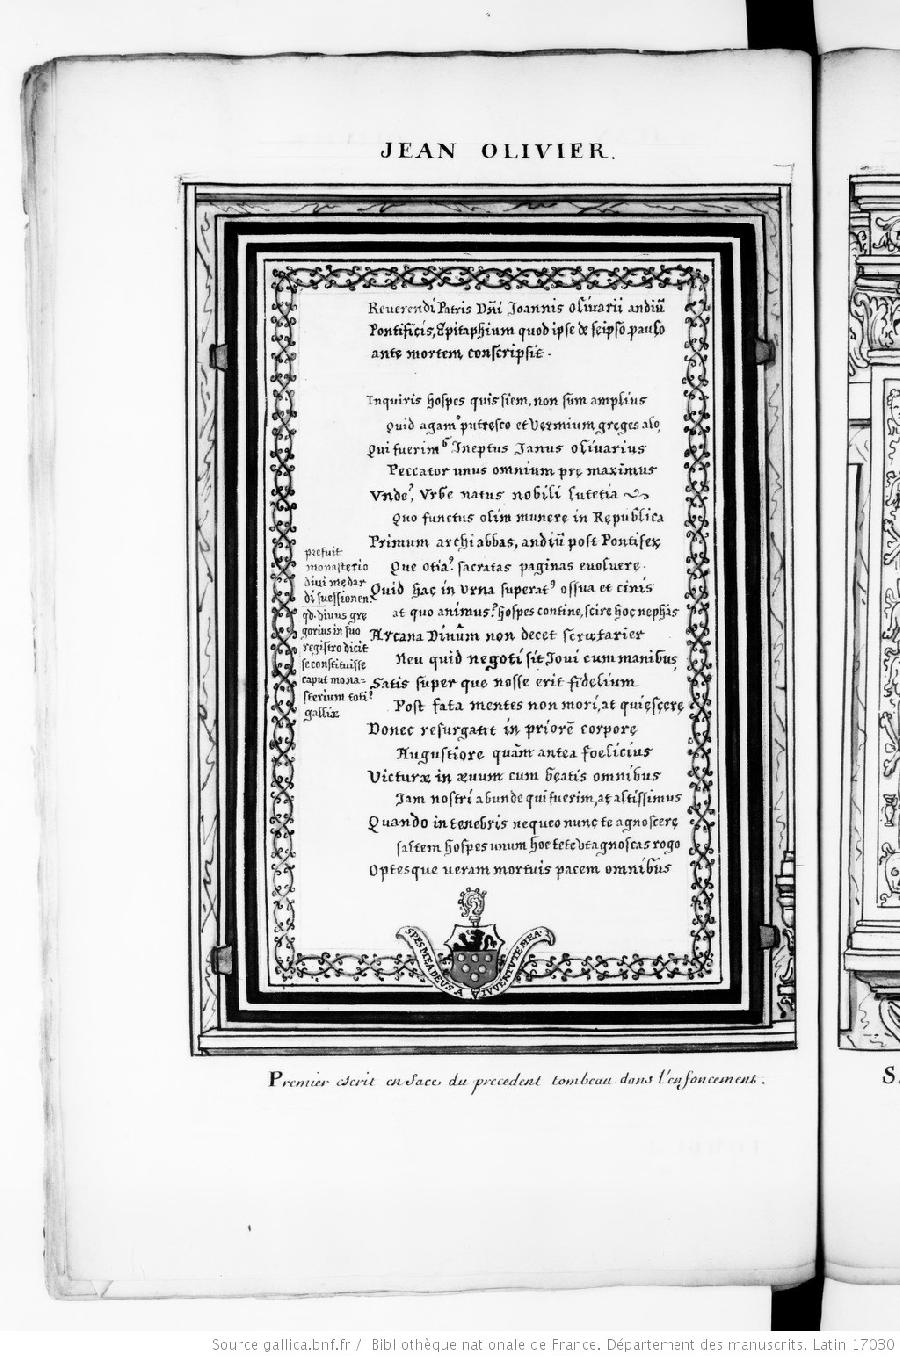 JEAN OLIVIER.
Reverendi Patris Dñi Joannis Olivarii andiũ
Pontificis, Epitaphium quod ipse de seipso paulo
ante mortem conscripsit.
Inquiris hospes quis siem, non sũm amplius
Quid agam? putresco et Vermium greges alo,
Qui fuerimꝰ Ineptus Janus olivarius
Peccator unus omnium prę maximus
Vnde? Vrbe natus nobili lutetia
Quo functus olim munere in Republica
Primum archi abbas, andiũ post Pontifex
Que otia? sacratas paginas evolvere.
Quid hac in Vrna superat? ossua et cinis
at quo animus? hospes contine, scire hoc nephas
Arcana Divũm non decet scrutarier
Neu quid negoti sit Jovi cum manibus
Satis super que nosse erit fidelium
Post fata mentes non mori, at quiescere
Donec resurgant in priorẽ corpore
Augustiore quàm antea foelicius
Victuræ in ævum cum beatis omnibus
Jam nostri abunde qui fuerim, at altissimus
Quando in tenebris nequeo nunc te agnoscere
saltem hospes unum hoc te te vt agnoscas rogo
Optesque veram mortuis pacem omnibus
prefuit
monasterio
divi medar
di suessionen.
qd. divus gre
gorius in suo
registro dicit
se constituisse
caput mona-
sterium toti?
galliæ
SPES MEA DEUS A IUVENTUTE MEA.
Premier escrit en face du precedent tombeau dans l'enfoncement.
S
Source gallica.bnf.fr / Bibliothèque nationale de France. Département des manuscrits. Latin 17030